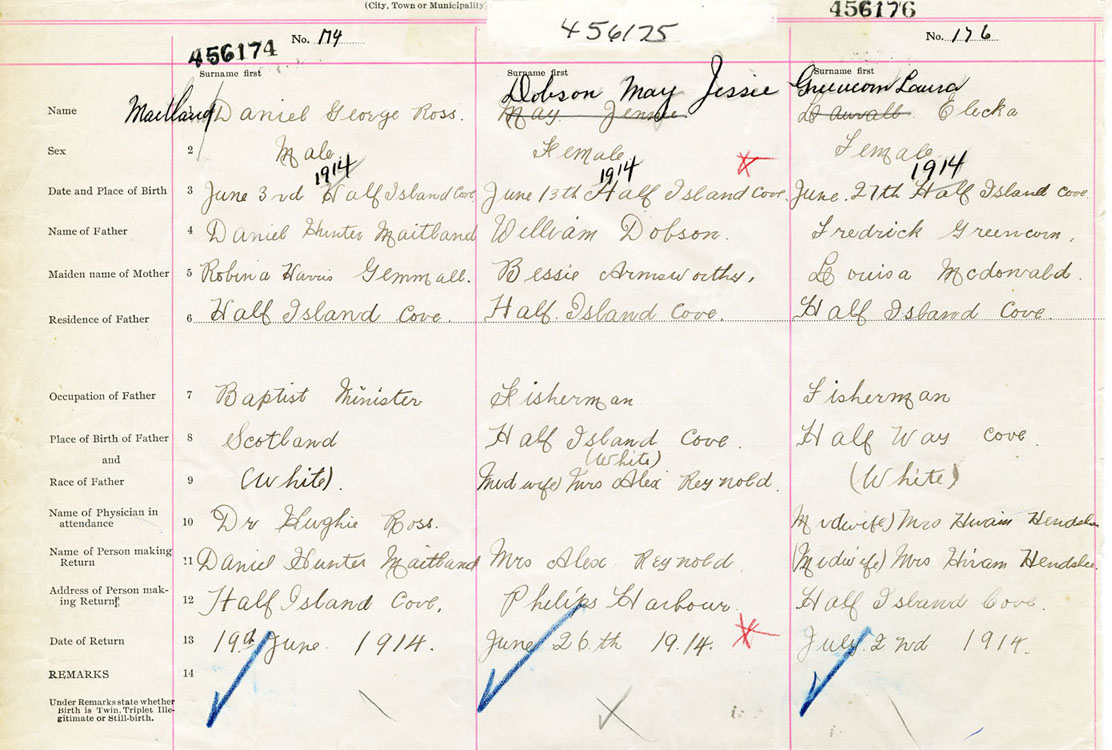 (City, Town or Municipality)
456174 No. 174 456175 456176 No. 176
Surname first Surname first Surname first
Name 1 Maitland Daniel George Ross. Dobson May Jessie Greencorn Laura
May Jennie. Elecka
Sex 2 Male Female Female
1914 1914 1914
Date and Place of Birth 3 June 3rd Half Island Cove June 13th Half Island Cove. June. 27th Half Island Cove.
Name of Father 4 Daniel Hunter Maitland William Dobson. Fredrick Greencorn,
Maiden name of Mother 5 Robina Harris Gemmall. Bessie Armsworthy, Louisa Mcdonald.
Residence of Father 6 Half Island Cove. Half Island Cove. Half Island Cove.
Occupation of Father 7 Baptist Minister Fisherman Fisherman
Place of Birth of Father 8 Scotland Half Island Cove. Half Way Cove.
and (White)
Race of Father 9 (White). Midwife) Mrs Alex Reynold. (White)
Name of Physician in
attendance 10 Dr Hughie Ross. Midwife) Mrs Hiram
Name of Person making
Return 11 Daniel Hunter Maitland Mrs Alex Reynold. (Midwife) Mrs Hiram
Address of Person mak-
ing Return 12 Half Island Cove. Philips Harbour. Half Island Cove.
Date of Return 13 19th June 1914. June 26th 1914. July 2nd 1914.
REMARKS 14
Under Remarks state whether
Birth is Twin, Triplet Ille-
gitimate or Still-birth.